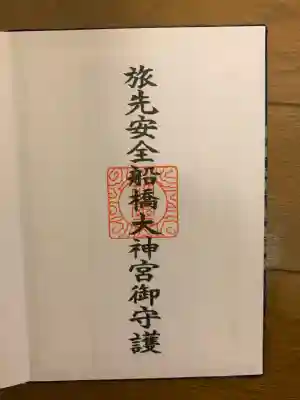 旅先安全船橋大神宮御守護